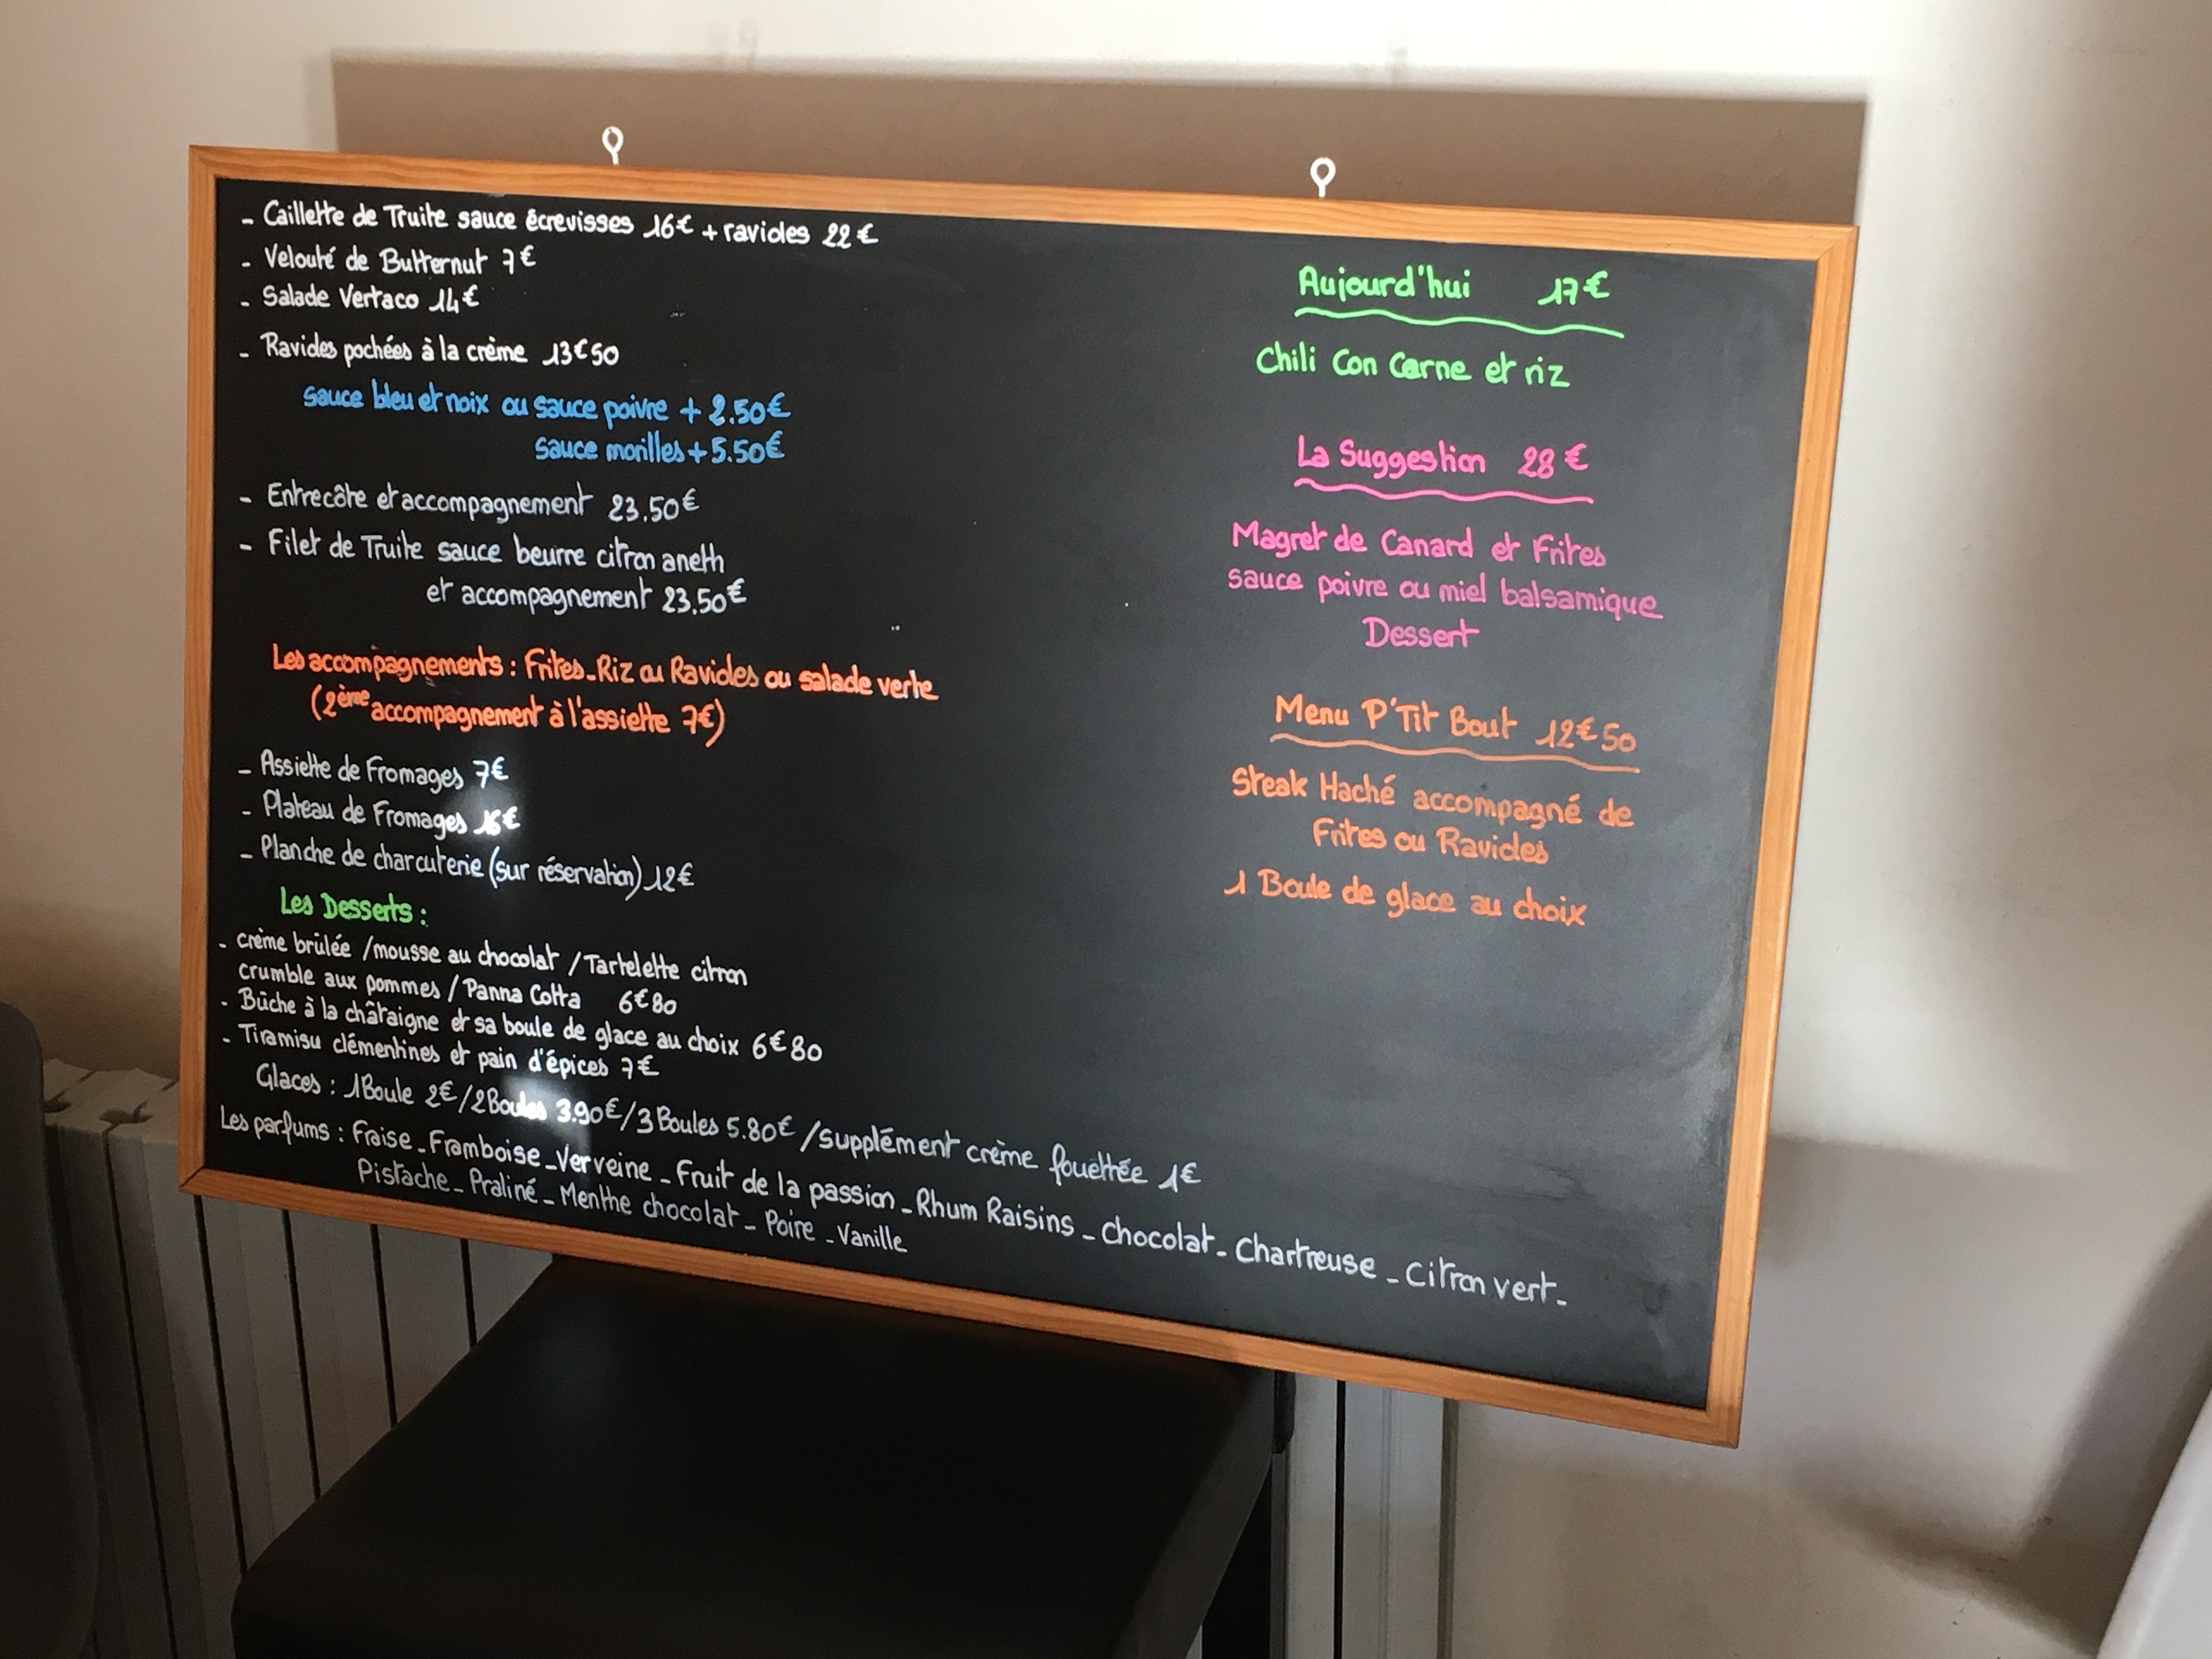 - Caillette de Truite sauce écrevisses 16€ + ravioles 22€
- Velouté de Butternut 7€
- Salade Vertaco 14€
- Ravioles pochées à la crème 13€50
sauce bleu et noix ou sauce poivre + 2.50€
sauce morilles + 5.50€
- Entrecôte et accompagnement 23.50€
- Filet de Truite sauce beurre citron aneth
et accompagnement 23.50€
Les accompagnements : Frites - Riz ou Ravioles ou salade verte
(2ème accompagnement à l'assiette 7€)
- Assiette de Fromages 7€
- Plateau de Fromages 16€
- Planche de charcuterie (sur réservation) 12€
Les Desserts :
- crème brûlée / mousse au chocolat / Tartelette citron
crumble aux pommes / Panna Cotta 6€80
- Bûche à la châtaigne et sa boule de glace au choix 6€80
- Tiramisu clémentines et pain d'épices 7€
Glaces : 1 Boule 2€ / 2 Boules 3.90€ / 3 Boules 5.80€ / supplément crème fouettée 1€
Les parfums : Fraise - Framboise - Verveine - Fruit de la passion - Rhum Raisins - Chocolat - Chartreuse - Citron vert -
Pistache - Praliné - Menthe chocolat - Poire - Vanille
Aujourd'hui 17€
Chili Con Carne et riz
La Suggestion 28€
Magret de Canard et Frites
sauce poivre ou miel balsamique
Dessert
Menu P'Tit Bout 12€50
Steak Haché accompagné de
Frites ou Ravioles
1 Boule de glace au choix